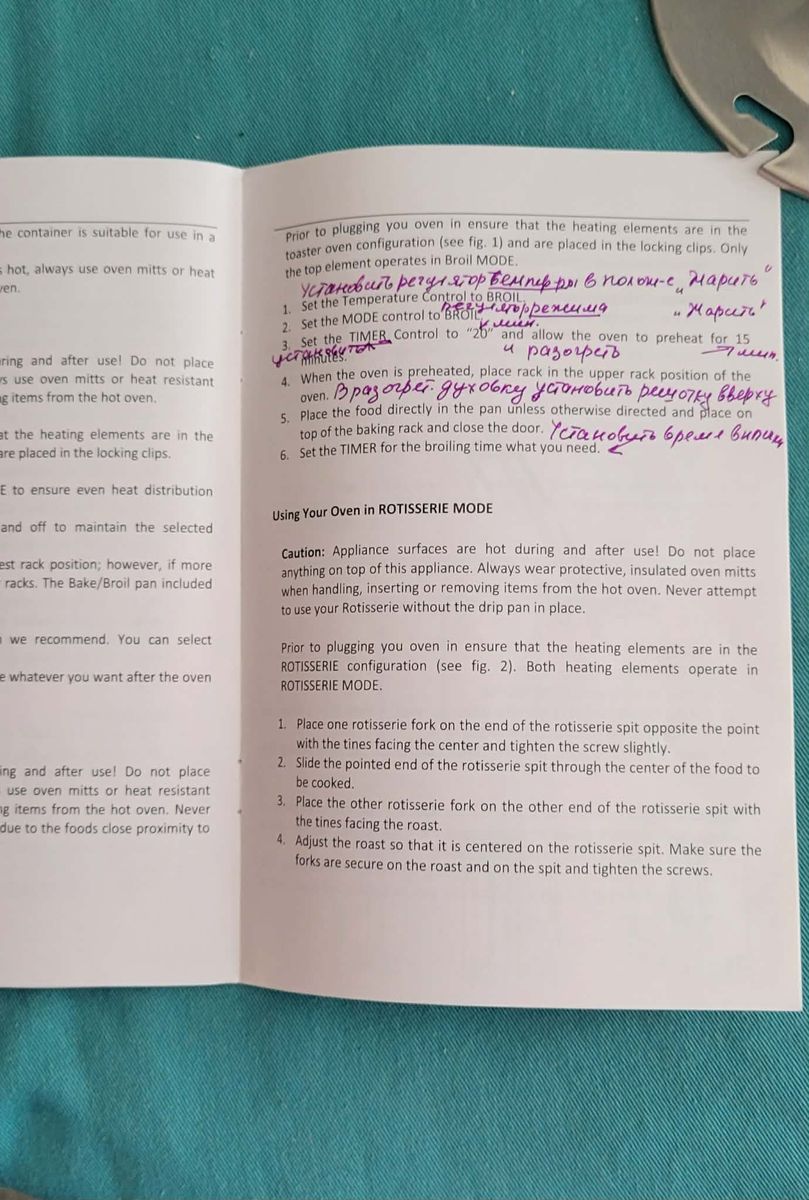 he container is suitable for use in a
s hot, always use oven mitts or heat
ven.
uring and after use! Do not place
ys use oven mitts or heat resistant
ng items from the hot oven.
at the heating elements are in the
are placed in the locking clips.
E to ensure even heat distribution
and off to maintain the selected
est rack position; however, if more
racks. The Bake/Broil pan included
we recommend. You can select
e whatever you want after the oven
ing and after use! Do not place
use oven mitts or heat resistant
ng items from the hot oven. Never
due to the foods close proximity to
Prior to plugging you oven in ensure that the heating elements are in the
toaster oven configuration (see fig. 1) and are placed in the locking clips. Only
the top element operates in Broil MODE.
Установить регулятор темпер-ры в полож-е „Жарить"
1. Set the Temperature Control to BROIL.
регулятор режима „Жарить"
2. Set the MODE control to BROIL.
мин.
3. Set the TIMER Control to "20" and allow the oven to preheat for 15
установить и разогреть мин.
minutes.
4. When the oven is preheated, place rack in the upper rack position of the
oven. В разогрет. духовку установить решотку вверху
5. Place the food directly in the pan unless otherwise directed and place on
top of the baking rack and close the door. Установить время
6. Set the TIMER for the broiling time what you need.
Using Your Oven in ROTISSERIE MODE
Caution: Appliance surfaces are hot during and after use! Do not place
anything on top of this appliance. Always wear protective, insulated oven mitts
when handling, inserting or removing items from the hot oven. Never attempt
to use your Rotisserie without the drip pan in place.
Prior to plugging you oven in ensure that the heating elements are in the
ROTISSERIE configuration (see fig. 2). Both heating elements operate in
ROTISSERIE MODE.
1. Place one rotisserie fork on the end of the rotisserie spit opposite the point
with the tines facing the center and tighten the screw slightly.
2. Slide the pointed end of the rotisserie spit through the center of the food to
be cooked.
3. Place the other rotisserie fork on the other end of the rotisserie spit with
the tines facing the roast.
4. Adjust the roast so that it is centered on the rotisserie spit. Make sure the
forks are secure on the roast and on the spit and tighten the screws.